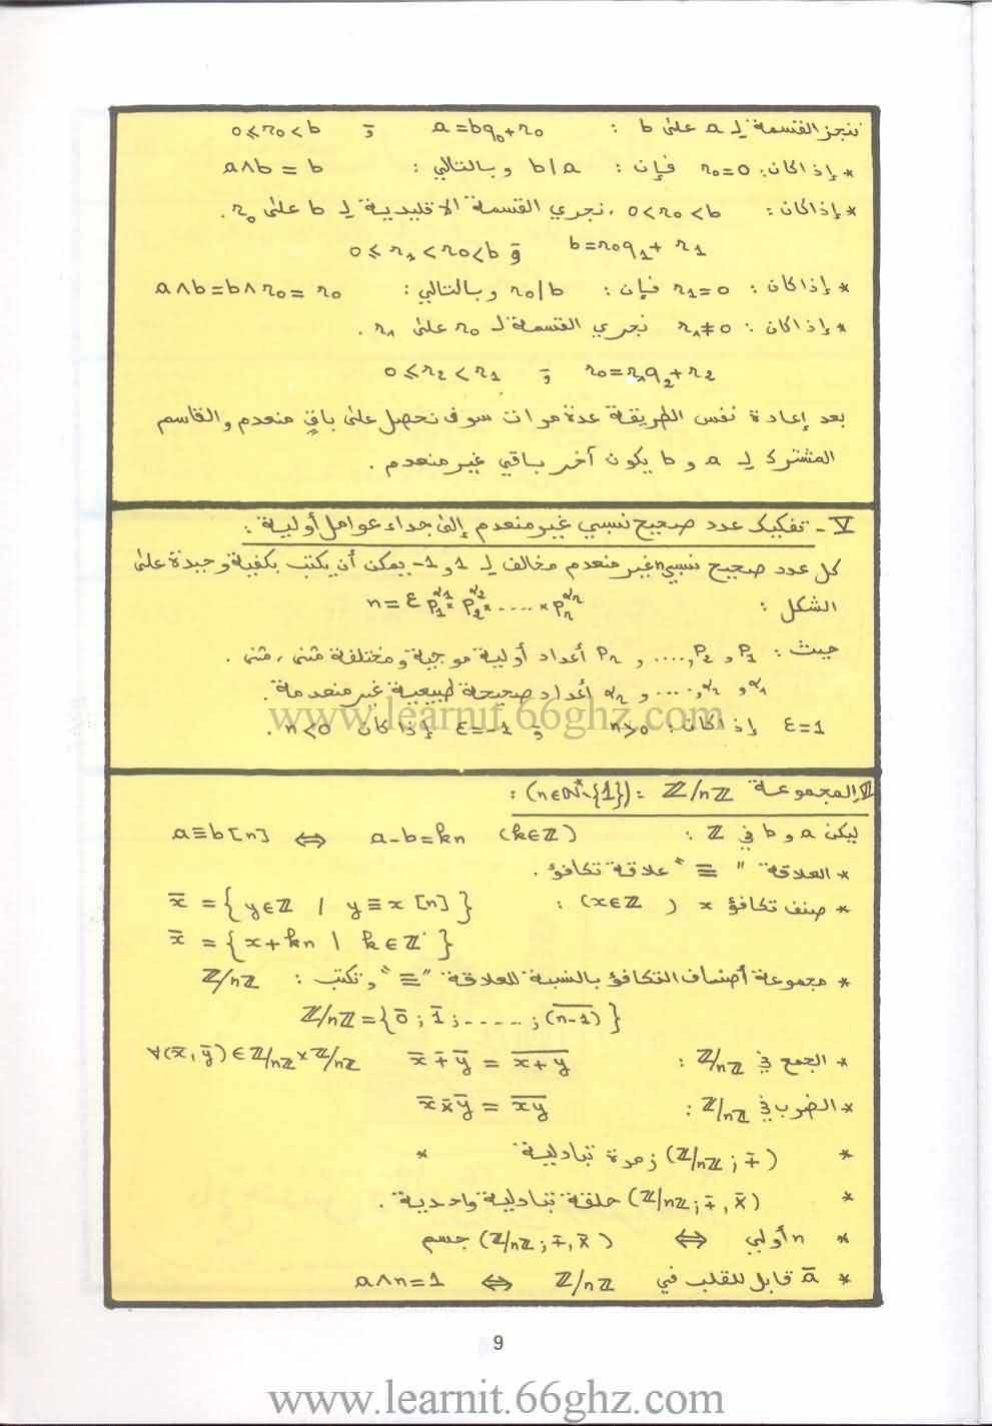 ننجز القسمة لـ a على b : a=bq₀+r₀ و 0≤r₀<b
* إذا كان: r₀=0 فإن : b|a وبالتالي : a∧b = b
* إذا كان : 0<r₀<b ، نجري القسمة الاقليدية لـ b على r₀.
b=r₀q₁+r₁ و 0≤r₁<r₀<b
* إذا كان : r₁=0 فإن : r₀|b وبالتالي : a∧b=b∧r₀=r₀
* إذا كان : r₁≠0 نجري القسمة لـ r₀ على r₁ .
r₀=r₁q₂+r₂ و 0≤r₂<r₁
بعد إعادة نفس الطريقة عدة مرات سوف نحصل على باقٍ منعدم والقاسم
المشترك لـ a و b يكون آخر باقي غير منعدم .
V - تفكيك عدد صحيح نسبي غير منعدم إلى جداء عوامل أولية :
كل عدد صحيح نسبي n غير منعدم مخالف لـ 1 و 1- يمكن أن يكتب بكيفية وحيدة على
الشكل : n=ε p₁^α₁ × p₂^α₂ × .... × pᵣ^αᵣ
حيث : p₁ و p₂ ,...., و pᵣ أعداد أولية موجبة ومختلفة مثنى ، مثنى .
α₁ و α₂ ,.... و αᵣ أعداد صحيحة طبيعية غير منعدمة.
ε=1 إذا كان : n>0 و ε=-1 إذا كان n<0 .
www.learnit.66ghz.com
VI المجموعة ℤ/nℤ : (n∈ℕ*\{1}) :
ليكن a و b في ℤ : a≡b[n] ⇔ a-b=kn (k∈ℤ)
* العلاقة "≡" علاقة تكافؤ .
* صنف تكافؤ x (x∈ℤ) : x̄ = {y∈ℤ / y≡x [n]}
x̄ = {x+kn \ k∈ℤ}
* مجموعة أصناف التكافؤ بالنسبة للعلاقة "≡" و تكتب : ℤ/nℤ
ℤ/nℤ={0̄ ; 1̄ ;.....; (n-1)̅}
* الجمع في ℤ/nℤ : x̄ +̄ ȳ = x+y̅ ∀(x̄,ȳ)∈ℤ/nℤ×ℤ/nℤ
* الضرب في ℤ/nℤ : x̄ ×̄ ȳ = xy̅
* (ℤ/nℤ ; +̄) زمرة تبادلية *
* (ℤ/nℤ ; +̄ , ×̄) حلقة تبادلية واحدية .
* n أولي ⇔ (ℤ/nℤ ; +̄ , ×̄) جسم
* ā قابل للقلب في ℤ/nℤ ⇔ a∧n=1
9
www.learnit.66ghz.com